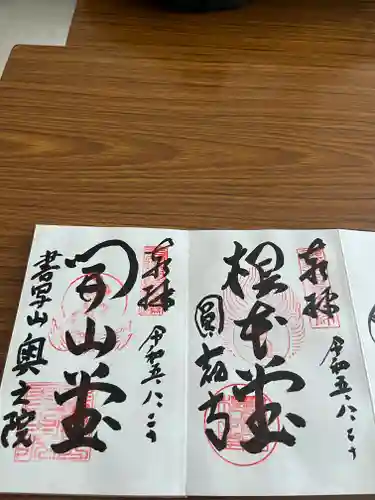 奉拝
令和五.八.二〇
根本堂
圓教寺
奉拝
令和五.八.二〇
開山堂
書写山奥之院